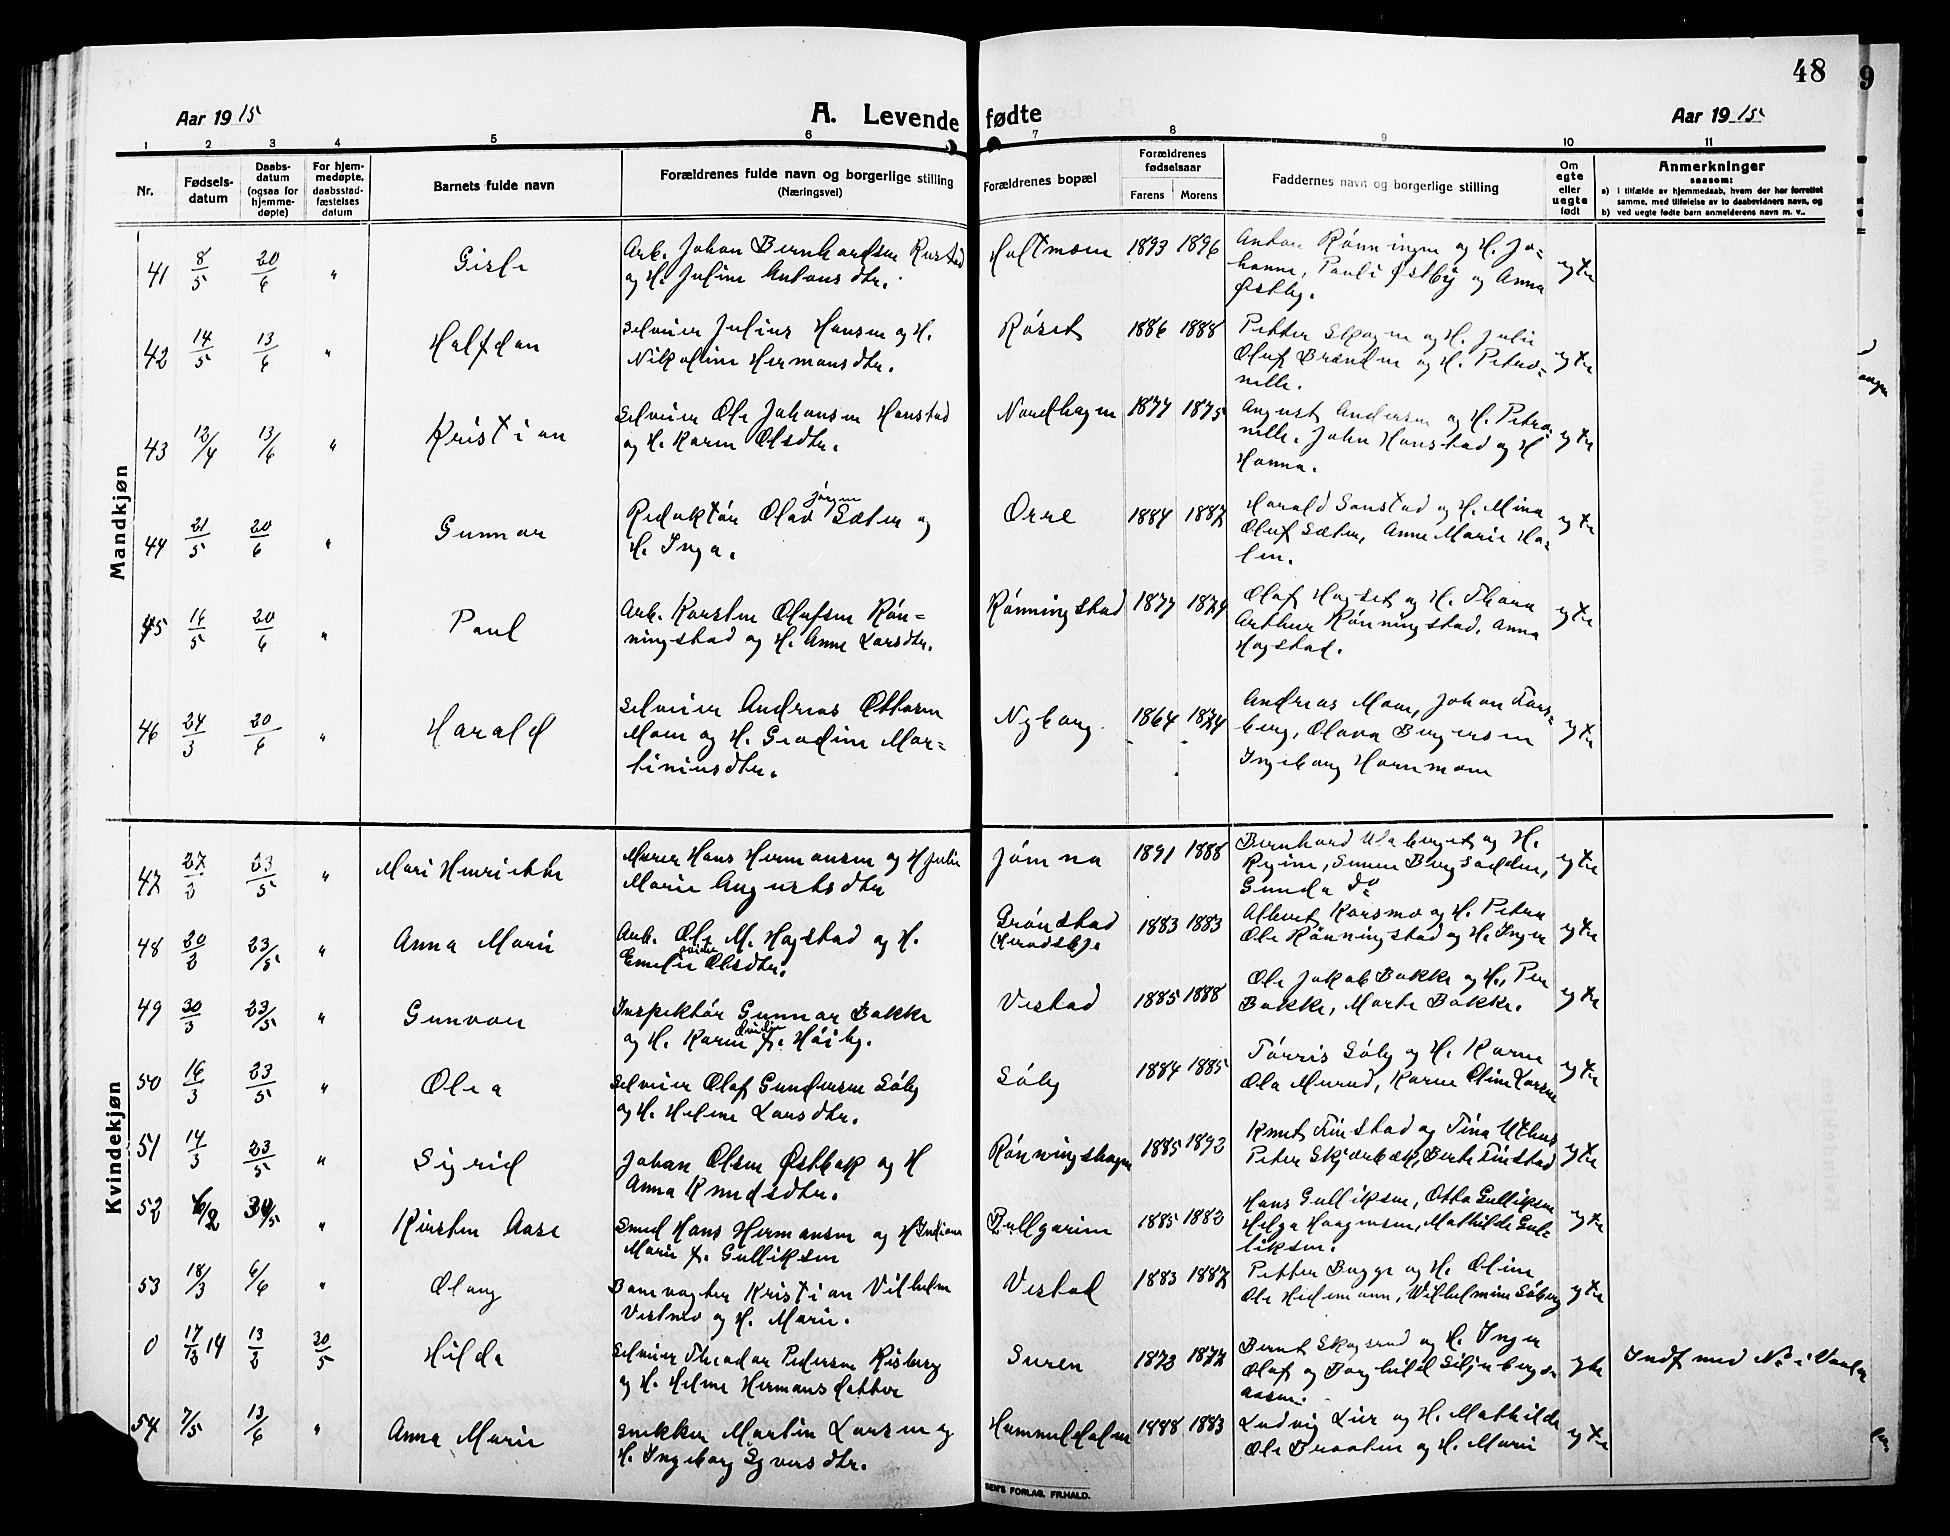 48
9
Aar 1915
A. Levende fødte
Aar 1915
1 2 3 4 5 6 7 8 9 10 11
Nr.
Fødsels-
datum
Daabs-
datum
(ogsaa for
hjemme-
døpte)
For hjem-
medøpte.
daabsstad-
fæstelses
datum
Barnets fulde navn
Forældrenes fulde navn og borgerlige stilling
(Næringsvei)
Forældrenes bopæl
Forældrenes
fødselsaar
Farens
Morens
Faddernes navn og borgerlige stilling
Om
egte
eller
uegte
født
Anmerkninger
saasom:
a) i tilfælde av hjemmedaab, hvem der har forrettet
samme, med tilføielse av to daabsvidners navn, og
b) ved uegte fødte barn anmelderens navn m. v..
Mandkjøn
41 8/5 20/6 " Gisle
Arb. Johan Bernhardsen Rustad
og H. Juline Antonsdtr.
Holtmoen 1893 1896
Anton Rønningen og H. Jo-
hanne, Pauli Østby og Anna
Østby.
egte
42 14/5 13/6 " Halfdan
Selveier Julius Hansen og H.
Nikoline Hermansdtr.
Røset 1886 1888
Petter Skogen og H. Julie
Oluf Brenden og H. Petro-
nelle.
egte
43 12/4 13/6 " Kristian
Selveier Ole Johansen Hanstad
og H. Karen Olsdtr.
Nordhagen 1877 1875
August Andersen og H. Petro-
nelle. John Hanstad og H
Hanna.
egte
44 21/5 20/6 " Gunnar
Redaktør Olav Jørgen Sæter og
H. Inga.
Orre 1884 1887
Harald Sonstad og H. Mina
Oluf Sæter, Anne Marie Ha-
len.
egte
45 16/5 20/6 " Paul
Arb. Karsten Olufsen Røn-
ningstad og H. Anne Larsdtr.
Rønningstad 1877 1879
Olaf Hagset og H. Thora
Arthur Rønningstad, Anna
Hagstad.
egte
46 24/3 20/6 " Harald
Selveier Andreas Ottosen
Moen og H. Gradine Mar-
tiniusdtr.
Nyborg 1864 1874
Andreas Moen, Johan Fors-
berg, Olava Bergersen
Ingeborg Hornmoen
egte
Kvindekjøn
47 27/2 23/5 " Mari Henriette
Murer Hans Hermansen og H Julie
Marie Augustsdtr
Jømna 1891 1888
Bernhard Ulaberget og H.
Regine, Simen Bergsodden,
Gunda do
egte
48 20/2 23/5 " Anna Marie
Arb. Ole M. Hagstad og H.
Emelie Olsdtr.
Grønstad
1883 1883
Albert Korsmo og H. Petra
Ole Rønningstad og H. Inger
egte
49 30/3 23/5 " Gunvor
Inspektør Gunnar Bakke
og H. Karen f. Høiby.
Vestad 1885 1888
Ole Jakob Bakke og H., Per
Bakke, Marte Bakke.
egte
50 16/3 23/5 " Olea
Selveier Olaf Gundersen Søby
og H. Helene Larsdtr.
Søby 1884 1885
Tørris Søby og H. Karen
Ola Murud, Karen Oline Larsen
egte
51 14/3 23/5 " Sigrid
Johan Olsen Østbak og H
Anna Knudsdtr.
Rønningshagen 1885 1892
Knut Finstad og Tina Uthus
Peter Skjærbæk, Berte Finstad
egte
52 6/2 " Kirsten Aase
Smed Hans Hermansen og H Indiana
Marie f. Gulliksen
Bullgarien 1885 1882
Hans Gulliksen, Otto Gulliksen
Helga Haagensen, Mathilde Gul-
liksen.
egte
53 18/3 6/6 " Olaug
Banevogter Kristian Vilhelm
Vestmo og H. Marie.
Vestad 1883 1887
Petter Bagge og H. Oline
Ole Hidemann, Wilhelmine Søberg
egte
0 17/12 14 13/2 30/5 Hilda
Selveier Theodor Pedersen Risberg
og H. Helene Hermansdatter
Suren 1873 1877
Bernt Skogsrud og H. Inger
Olaf og Borghild Siljuberg
aasen.
egte
Indf med No i Vaaler
54 7/5 13/6 " Anna Marie
Snekker Martin Larsen og
H. Ingeborg Syversdtr.
Hummeldalen 1888 1883
Ludvig Lier og H. Mathilde
Ole Braaten og H. Marie
egte
SEM'S FORLAG. FR.HALD.